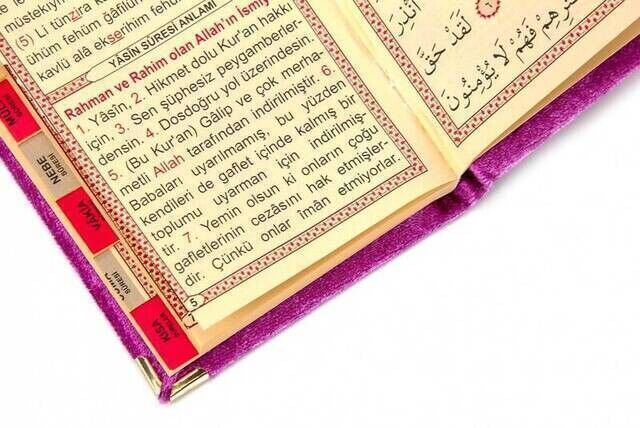 nüstekiym
(5) Li tünzira
ühüm fehüm ğafilûn
kavlü alâ ekserihim fehüm
YÂSİN SÛRESİ ANLAMI
Rahman ve Rahim olan Allah'ın İsmiy
1. Yâsîn, 2. Hikmet dolu Kur'an hakkı
için, 3. Sen şüphesiz peygamberler-
densin. 4. Dosdoğru yol üzerindesin.
5. (Bu Kur'an) Gâlip ve çok merha-
metli Allah tarafından indirilmiştir. 6.
Babaları uyarılmamış, bu yüzden
kendileri de gaflet içinde kalmış bir
toplumu uyarman için indirilmiş-
tir. 7. Yemin olsun ki onların çoğu
gafletlerinin cezâsını hak etmişler-
dir. Çünkü onlar îmân etmiyorlar.
5
NEBE
SÛRESİ
VÂKIA
SÛRESİ
KISA
SÛRELER
لَقَدْ حَقَّ
فَهُمْ لَا يُؤْمِنُونَ